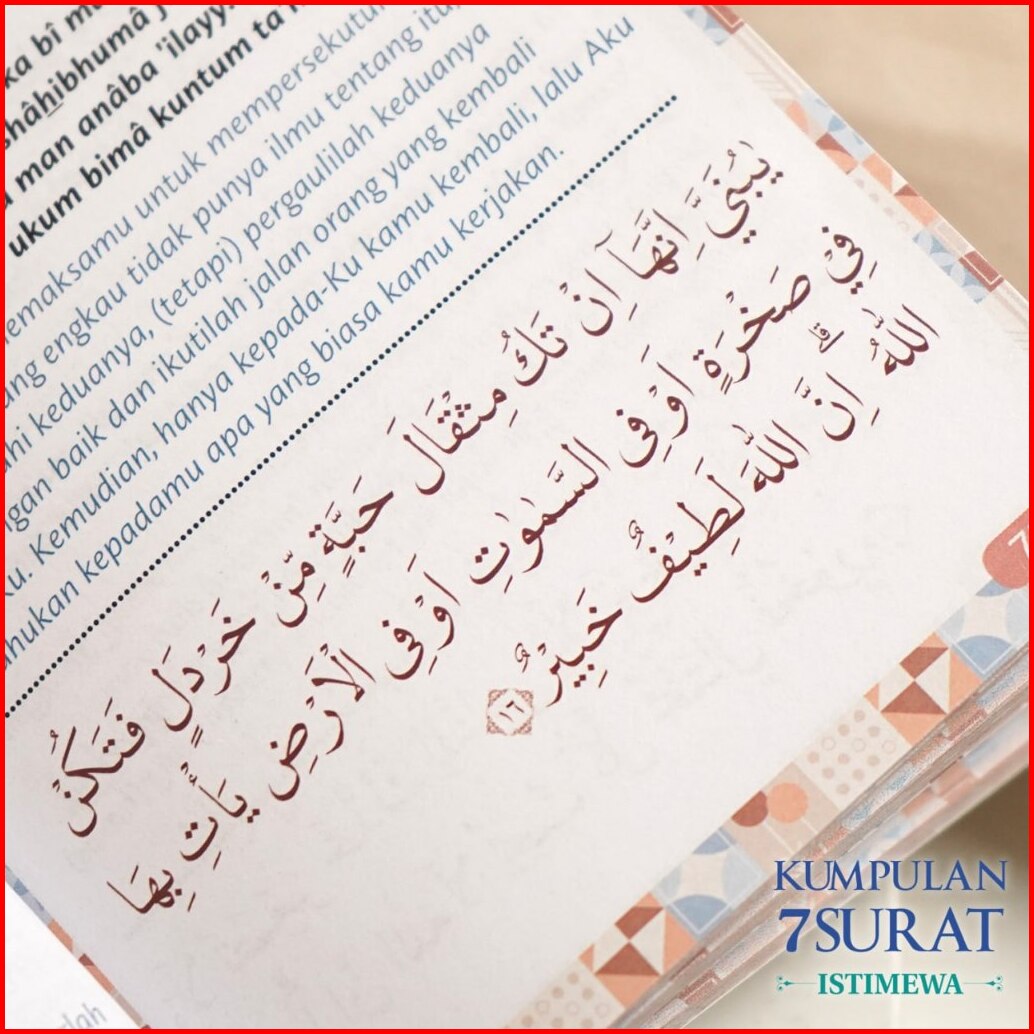 ka bî
shâhibhumâ
man anâba 'ilayy.
ukum bimâ kuntum
emaksamu untuk mempersekutu
ang engkau tidak punya ilmu tentang itu,
hi keduanya, (tetapi) pergaulilah keduanya
ngan baik dan ikutilah jalan orang yang kembali
Ku. Kemudian, hanya kepada-Ku kamu kembali, lalu Aku
ahukan kepadamu apa yang biasa kamu kerjakan.
يٰبُنَيَّ اِنَّهَآ اِنْ تَكُ مِثْقَالَ حَبَّةٍ مِّنْ خَرْدَلٍ فَتَكُنْ
فِيْ صَخْرَةٍ اَوْ فِى السَّمٰوٰتِ اَوْ فِى الْاَرْضِ يَأْتِ بِهَا
اللّٰهُ ۗاِنَّ اللّٰهَ لَطِيْفٌ خَبِيْرٌ ١٦
KUMPULAN
7SURAT
ISTIMEWA